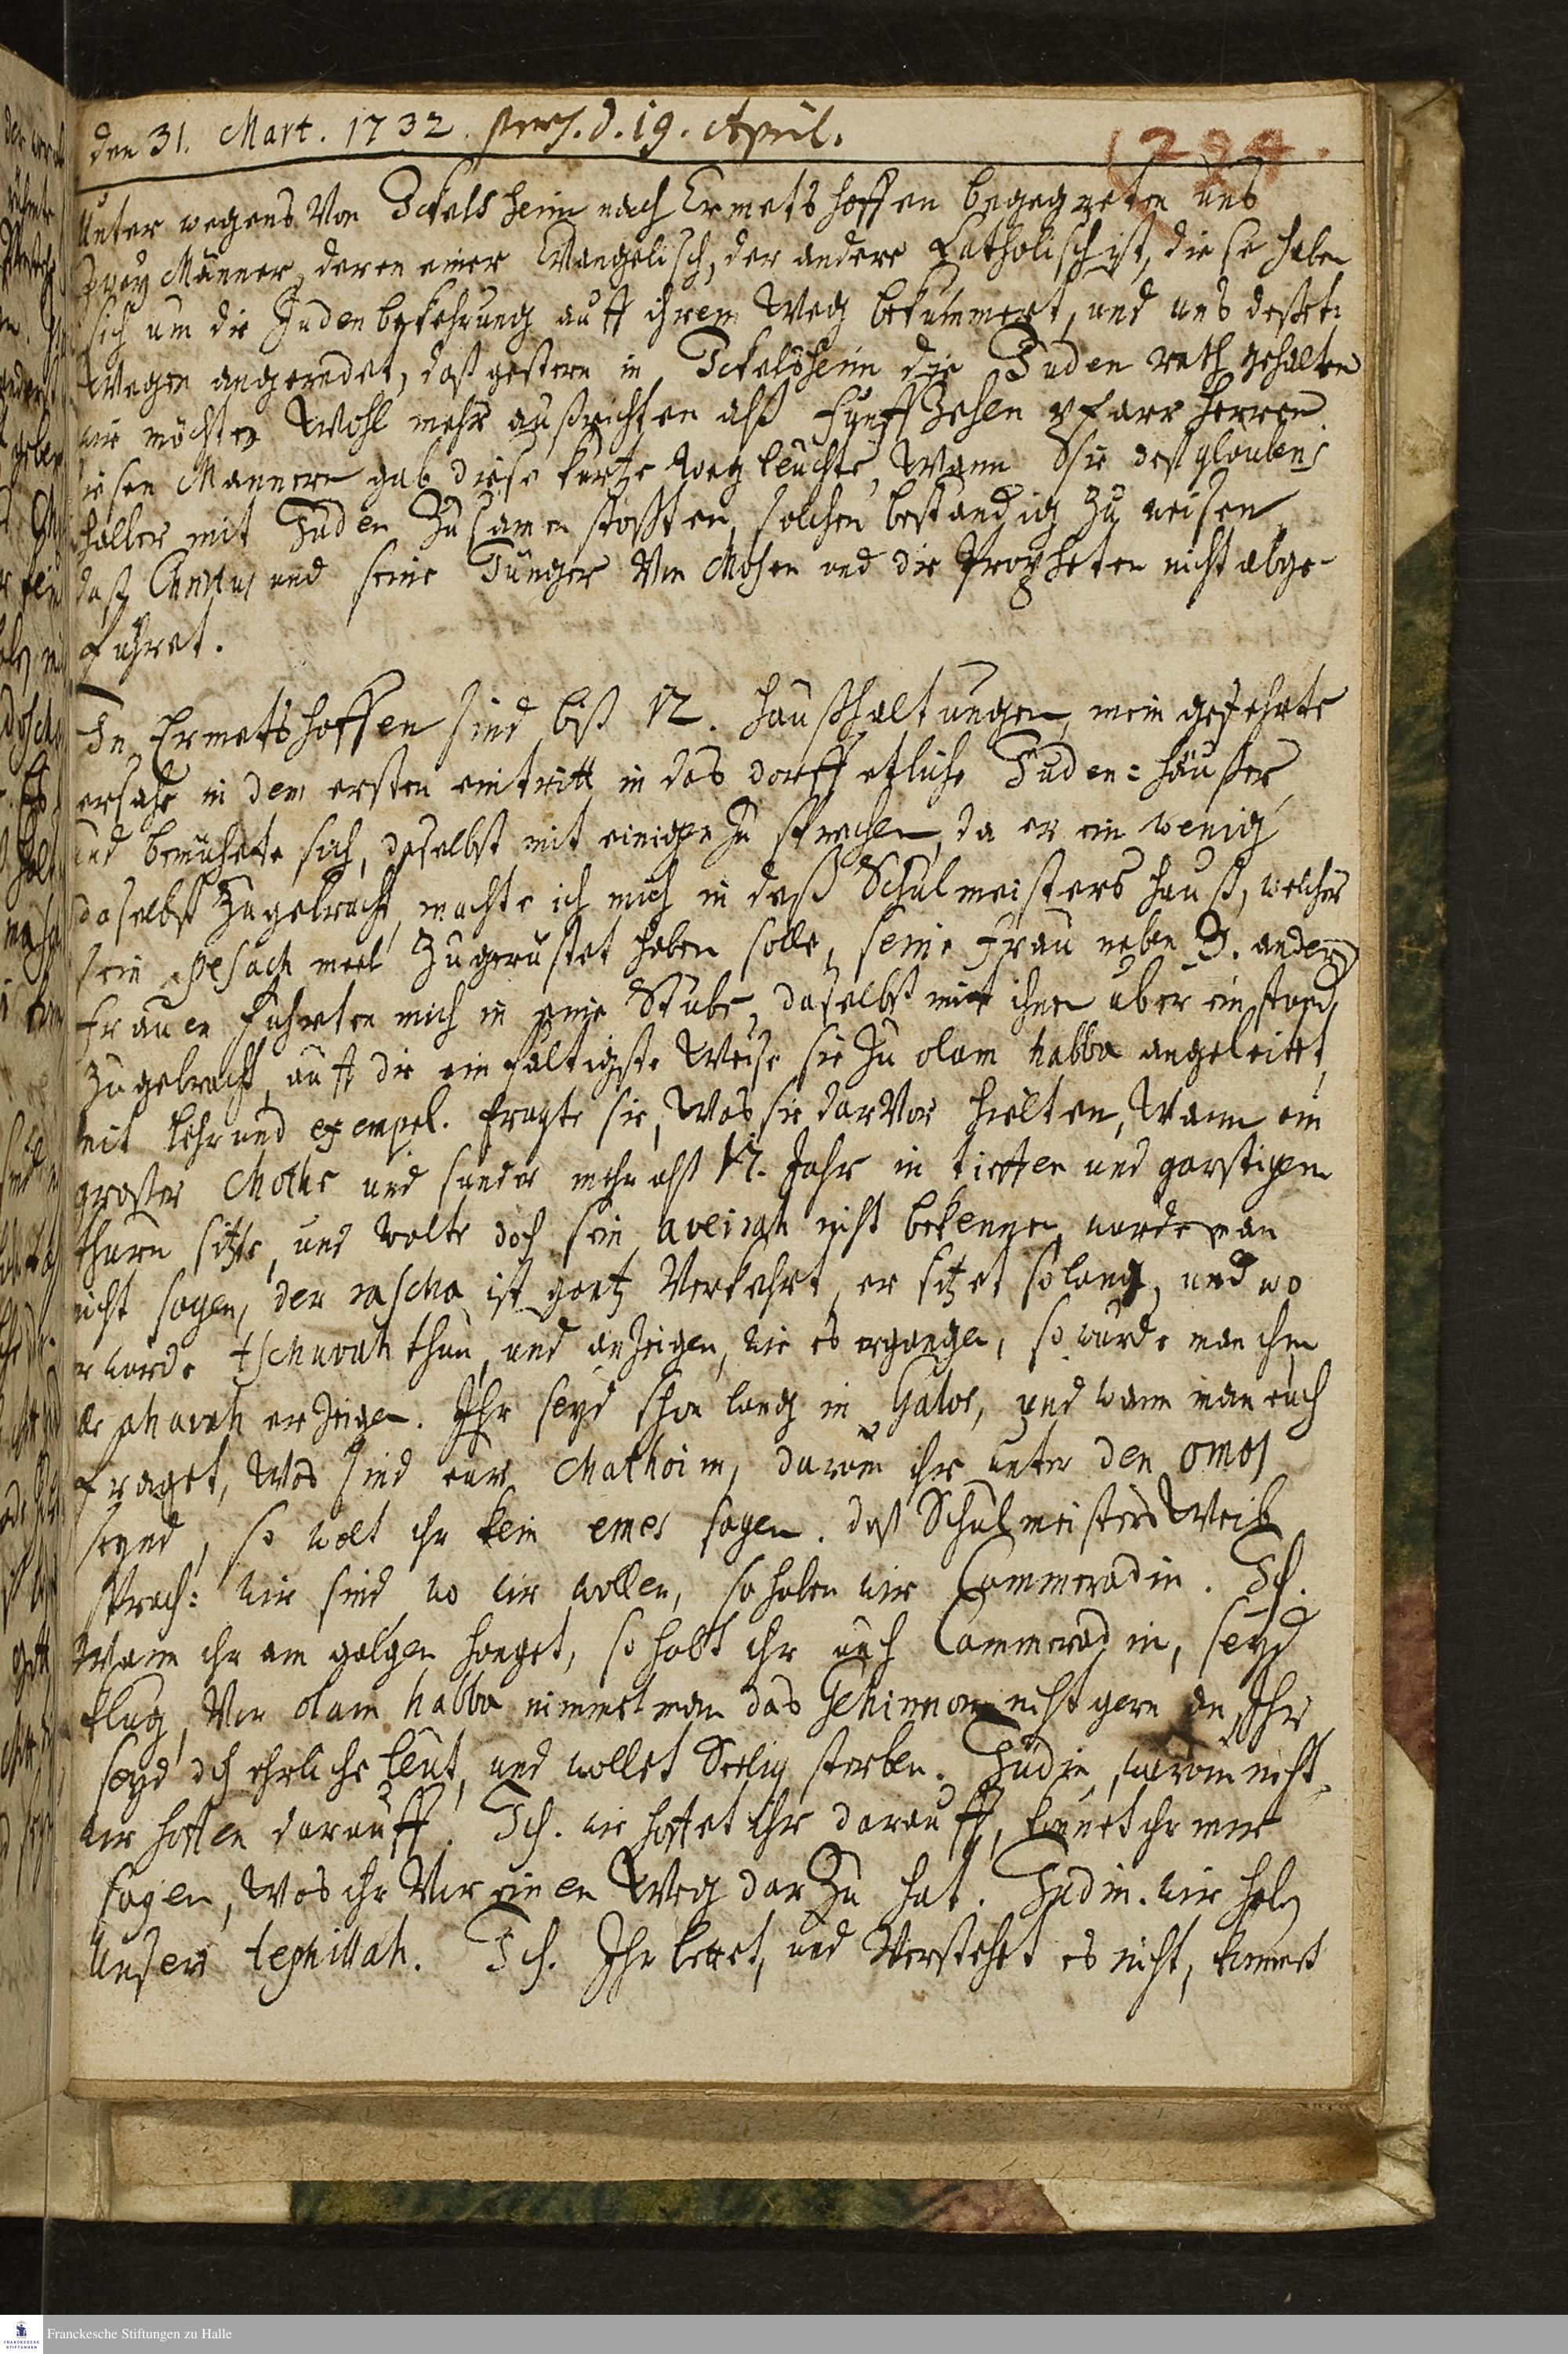 den 31. Mart. 1732. d. 19. April.
(224.
Unter wegens Von Ickelsheim nach Ermetshoffen begegneten uns
zwey Männer, deren einer Evangelisch, der andere Catholisch ist, diese haben
sich um die Judenbekehrung auff ihrem Weg bekümmert, und uns
wegen angeredet, daß gestern in Ickelsheim die Juden rath gehalten
wir möchten Wohl mehr außrichten alß fünffzehen pfarr herren.
diesen Mannern gab diese kurtze, Wann Sie deß glaubens
halber mit Juden Zusamen stossten, solchen beständig zu weisen
daß Christus und seine Jünger Von Mosen und die Propheten nicht abge-
führet.
In Ermetshoffen sind biß 12. haußhaltungen, mein gefehrte
ersahe in dem ersten eintritt in das dorff etliche Juden=häußer
und bemühete sich, daselbst mit einigen zu sprechen, da er ein wenig
daselbst Zugebracht, machte ich mich in deß Schulmeisters hauß, welcher
sein pesach meel Zugerüstet haben solle, seine frau neben 3. andern
frauen führten mich in eine Stube, daselbst mit ihnen über ein stund
zugebracht, auff die einfältigste Weise sie zu olam habba angeleitet,
mit lehr und exempel. fragte sie, Was sie darVor hielten, Wann ein
grosser Chothe und sünder mehr alß 12. Jahr in tieffen und garstigen
thurn sitze, und Wolte doch sein aveirah nicht bekennen, würde man
nicht sagen, der rascha ist gantz Verkehrt, er sitzet so lang, und wo
er würde tschuvah thun, und anzeigen, wie es ergangen, so würde man ihm
ahavah erzeigen. Ihr seyd schon lang in Galos, und wann man euch
fraget, Was sind eure Chathoim, darum ihr unter den omos
seynd, so wolt ihr kein emes sagen. deß Schulmeisters Weib
sprach: wir sind wo wir wollen, so haben wir Cammeradin. Ich.
Wann ihr am galgen hanget, so habt ihr auch Cammeradin, seyd
klug, Vor olam habba nimmet man das Gehinnom nicht gern an, Ihr
seyd doch ehrliche leut, und wollet Seelig sterben. Jüdin, warum nicht,
wir hoffen darauff. Ich. wie hoffet ihr darauff, könnet ihr mir
sagen, Was ihr Vor einen Weg dar zu hat. Jüdin. wir haben
Unsere tephillah. Ich. Ihr bettet, und Verstehet es nicht, kommet
Franckesche Stiftungen zu Halle